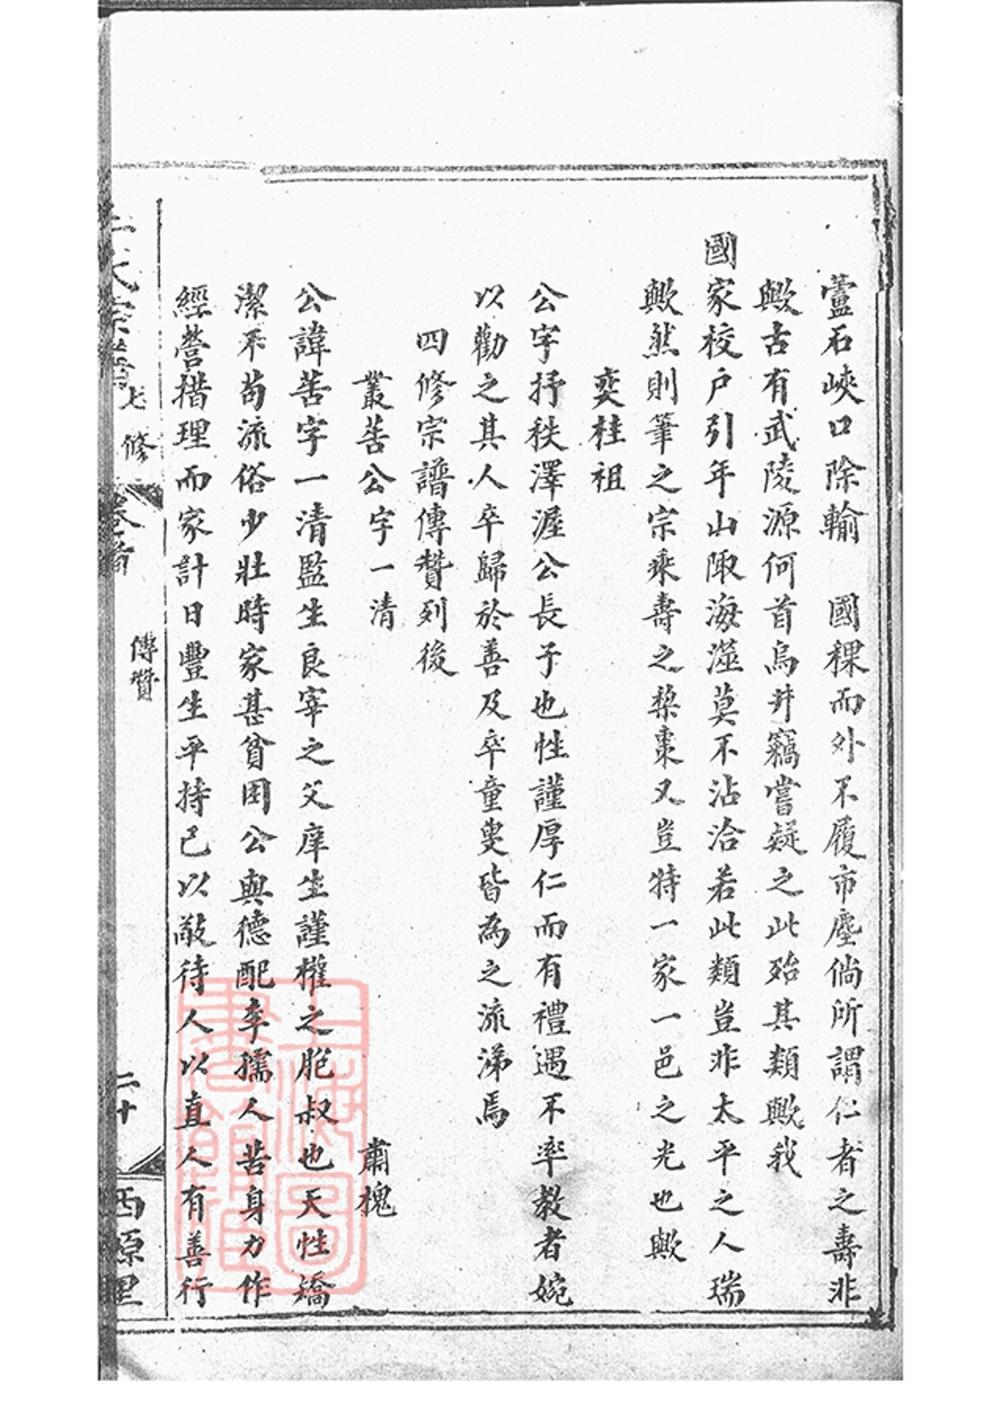 蘆石峽口除輸　國稞而外不履市塵倘所謂仁者之壽非
歟古有武陵源何首烏井竊嘗疑之此殆其類歟我
國家校户引年山陬海澨莫不沾洽若此類豈非太平之人瑞
歟然則筆之宗乘壽之梨棗又豈特一家一邑之光也歟
奕桂祖
公字抒秩澤渥公長子也性謹厚仁而有禮遇不率教者婉
以勸之其人卒歸於善及卒童叟皆為之流涕焉
四修宗譜傳贊列後
叢善公字一清　肅槐
公諱善字一清監生良宰之父庠生謹權之胞叔也天性矯
潔不苟流俗少壯時家甚貧困公與德配李孺人苦身力作
經營措理而家計日豐生平持己以敬待人以直人有善行
氏宗譜 七修 卷首 傳贊 二十 西源里
上海圖書館藏